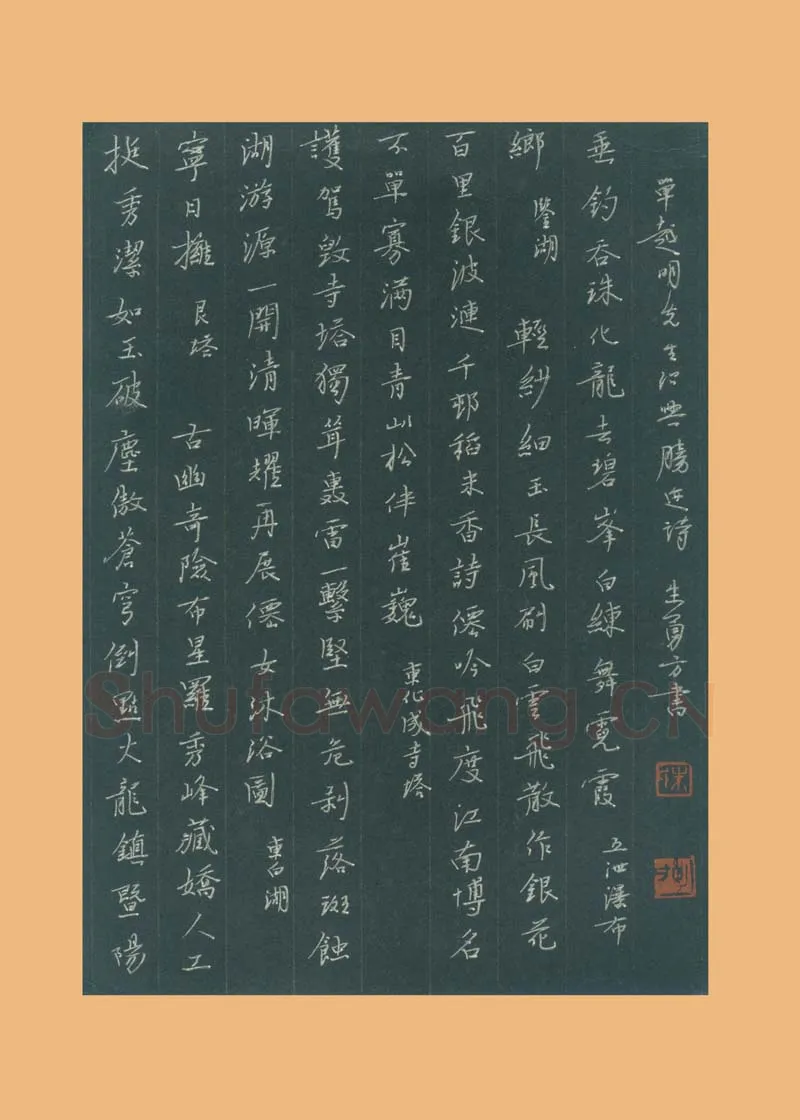 挺秀潔如玉破塵傲蒼穹倒點火龍鎮暨陽
寧日擁 艮塔 古幽奇險布星羅秀峰藏嬌人工
湖游源一開清暉耀再展僊女沐浴圖 東白湖
護駕毀寺塔獨聳轟雷一擊堅無危剥落斑蝕
不單寡滿目青山松伴崔巍 東化成寺塔
百里銀波漣千邨稻米香詩僊吟飛度江南博名
鄉 鑒湖 輕紗細玉長風刷白雲飛散作銀花
垂釣吞珠化龍去碧峯白練舞霓霞 五泄瀑布
單越明先生紹興勝迹詩 生勇方書
Shufawang.CN